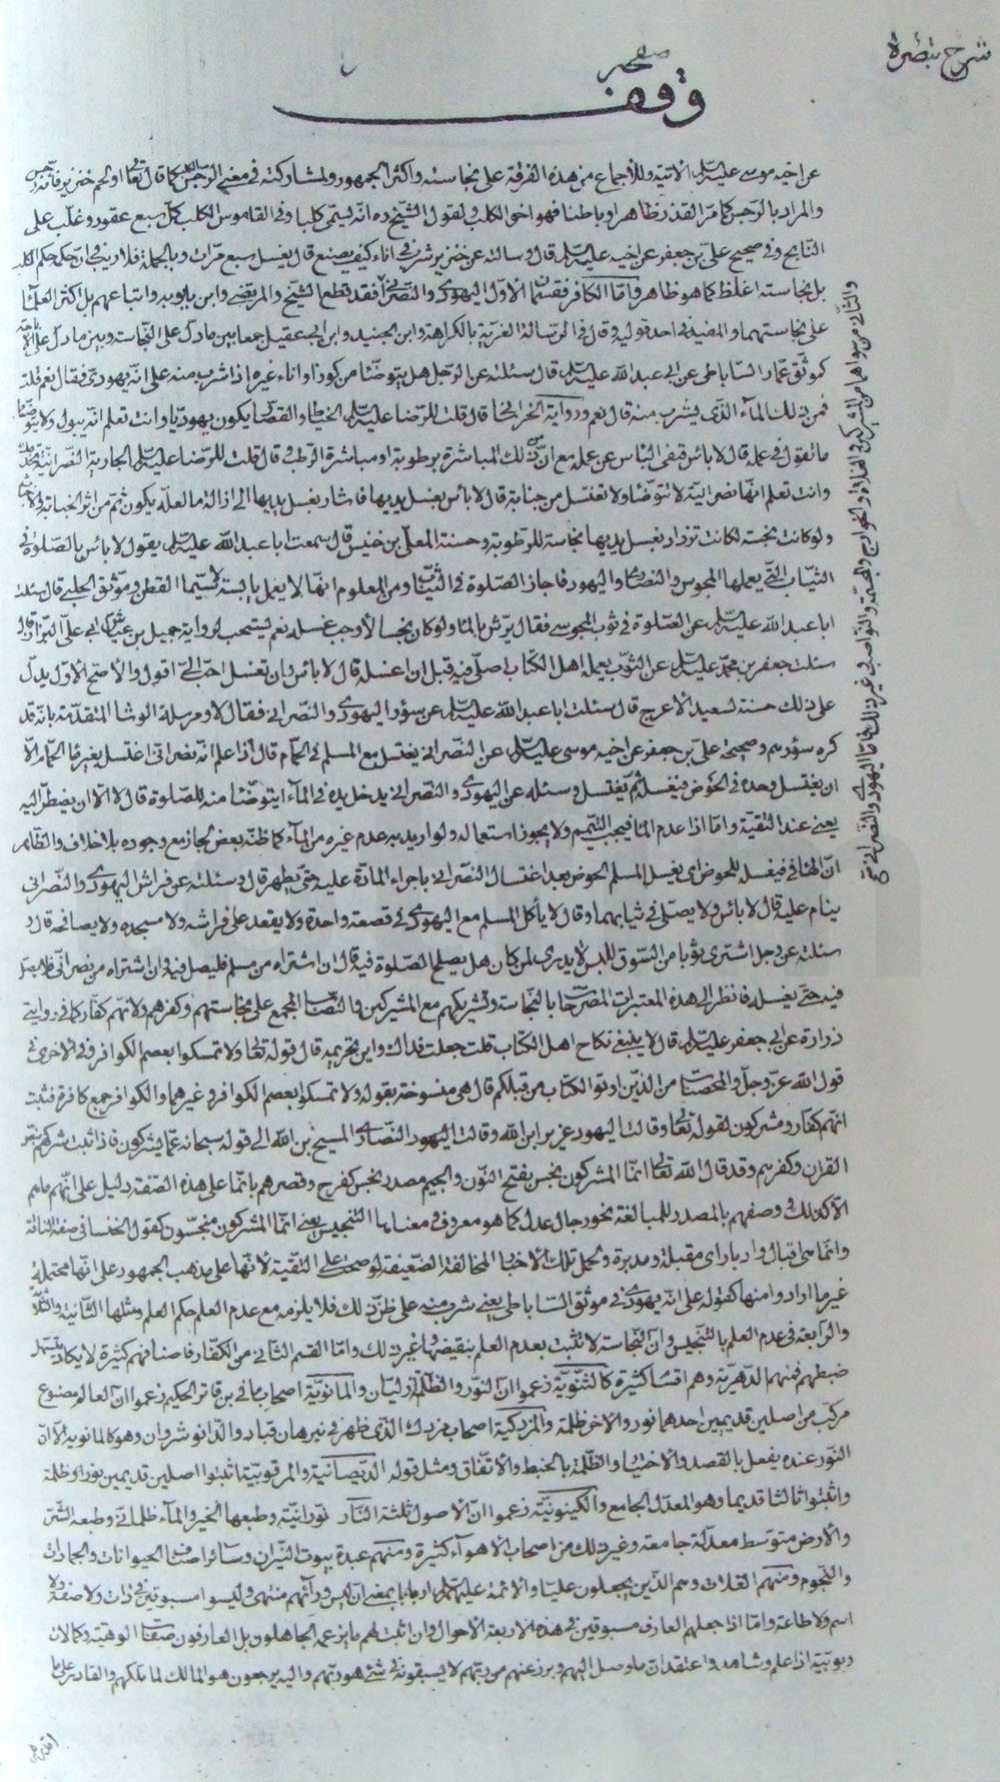 شرح تبصرة
وقف
عن اخيه موسى عليه السلام الاتية وللاجماع من هذه الفرقة على نجاسته واكثر الجمهور ولمشاركته في معنى الرجس كما قال تعالى او لحم خنزير فانه رجس
والمراد بالرجس كما مر القذر ظاهرا وباطنا فهو اخى الكلب ولقول الشيخ ره انه يسمى كلبا وفى القاموس الكلب كل سبع عقور وغلب على
النابح وفى صحيح على بن جعفر عن اخيه عليه السلام قال وسالته عن خنزير شرب في اناء كيف يصنع قال يغسل سبع مرات وبالجملة فلا ريب في ان حكمه حكم الكلب
بل نجاسته اغلظ كما هو ظاهر واما الكافر فقسمان الاول اليهودى والنصرانى فقد قطع الشيخ والمرتضى وابن بابويه واتباعهم بل اكثر العلماء
على نجاستهما والمفيد في احد قوليه وقال في الرسالة الغرية بالكراهة وابن الجنيد وابن ابى عقيل جمعا بين ما دل على النجاسة وبين ما دل على
كموثق عمار الساباطى عن ابى عبد الله عليه السلام قال سئلته عن الرجل هل يتوضأ من كوز او اناء غيره اذا شرب منه على انه يهودى فقال نعم قلت
فمن ذلك الماء الذى يشرب منه قال نعم ورواية الخراسانى قال قلت للرضا عليه السلام الخياط والقصار يكون يهوديا وانت تعلم انه يبول ولا يتوضأ
ما تقول في عمله قال لا باس من ذلك المباشرة برطوبة او مباشرة الرطب وقال قلت للرضا عليه السلام الجارية النصرانية تخدمك
وانت تعلم انها نصرانية لا تتوضأ ولا تغتسل من جنابة قال لا باس تغسل يديها فاشار بغسل يديها الى ازالة ما لعله يكون ثم من اثر الجنابة
ولو كانت نجسة لكانت تزداد بغسل يديها نجاسة للرطوبة وحسنة المعلى بن خنيس قال سمعت ابا عبد الله عليه السلام يقول لا باس بالصلوة في
الثياب التى يعملها المجوس والنصارى واليهود فاجاز الصلوة في الثياب ومن المعلوم انها لا يعمل يابسة لا سيما القطن وموثق الحلبى قال سئلت
ابا عبد الله عليه السلام عن الصلوة في ثوب المجوسى فقال يرش بالماء ولو كان نجسا لاوجب غسله نعم يستحب لرواية جميل بن عياش ابى على البزاز قال
سئلت جعفر بن محمد عليه السلام عن الثوب يعمله اهل الكتاب اصلى فيه قبل ان اغسله قال لا باس وان تغسل احب الى اقول والاصح الاول يدل
على ذلك حسنة لسعيد الاعرج قال سئلت ابا عبد الله عليه السلام عن سؤر اليهودى والنصرانى فقال لا ومرسلة الوشا المتقدمة بانه قد
كره سؤرهم وصحيحة على بن جعفر عن اخيه موسى عليه السلام عن النصرانى يغتسل مع المسلم في الحمام قال اذا علم انه نصرانى اغتسل بغير ماء الحمام الا
ان يغتسل وحده في الحوض فيغسله ثم يغتسل وسئله عن اليهودى والنصرانى يدخل يده في الماء ايتوضأ منه للصلوة قال لا الا ان يضطر اليه
يعنى عند التقية واما اذا عدم الماء فيجب التيمم ولا يجوز استعماله ولو اريد به عدم غيره من الماء كما ظنه بعض لجاز مع وجوده بلا خلاف والظاهر
ان الهاء في فيغسله للحوض اى يغسل المسلم الحوض بعد اغتسال النصرانى باجراء المادة عليه حتى يطهر قال وسئلته عن فراش اليهودى والنصرانى
ينام عليه قال لا باس ولا يصلى في ثيابهما وقال لا ياكل المسلم مع اليهودى في قصعة واحدة ولا يقعده على فراشه ولا مسجده ولا يصافحه قال و
سئلته عن رجل اشترى ثوبا من السوق للبس لا يدرى لمن كان هل يصلح الصلوة فيه قال ان اشتراه من مسلم فليصل فيه وان اشتراه من نصرانى فلا يصل
فيه حتى يغسله فانظر الى هذه المعتبرات المصرحات بالنجاسة وتشريكهم مع المشركين والنصاب المجمع على نجاستهم وكفرهم ولانهم كفار كما في رواية
زرارة عن ابى جعفر عليه السلام قال لا ينبغى نكاح اهل الكتاب قلت جعلت فداك واين تحريمه قال قوله تعالى ولا تمسكوا بعصم الكوافر وفى الاخرى في
قول الله عز وجل والمحصنات من الذين اوتوا الكتاب من قبلكم قال هى منسوخة بقوله ولا تمسكوا بعصم الكوافر وغيرهما والكوافر جمع كافرة فثبت
انهم كفار ومشركون لقوله تعالى وقالت اليهود عزير ابن الله وقالت النصارى المسيح بن الله الى قوله سبحانه عما يشركون فاذا ثبت شركهم بنص
القران وكفرهم وقد قال الله تعالى انما المشركون نجس بفتح النون والجيم مصدر نجس كفرح وقصرهم بانما على هذه الصفة دليل على انهم ما هم
الا كذلك ووصفهم بالمصدر للمبالغة نحو رجال عدل كما هو معروف في معناها التنجيس يعنى انما المشركون منجسون كقول الخنساء في صفة الناقة
وانما هى اقبال وادبار اى مقبلة ومدبرة وتحمل تلك الاخبار المخالفة الضعيفة لو صحت على التقية لانها على مذهب الجمهور على انها محتملة
غير ما ارادوا منها كقوله على انه يهودى في موثق الساباطى يعنى شرب منه على ظن ذلك فلا يلزمه مع عدم العلم حكم العلم ومثلها الثانية والثالثة
والرابعة في عدم العلم بالتنجيس وان النجاسة لا تثبت بعدم العلم بنقيضها وغير ذلك واما القسم الثانى من الكفار فاصنافهم كثيرة لا يكاد يتسهل
ضبطهم فمنهم الدهرية وهم اقسام كثيرة كالثنوية زعموا ان النور والظلمة ازليان والمانوية اصحاب مانى بن فاتن الحكيم زعموا ان العالم مصنوع
مركب من اصلين قديمين احدهما نور والاخر ظلمة والمزدكية اصحاب مزدك الذى ظهر في زمان قباد والد انوشروان وهو كالمانوية الا ان
النور عنده يفعل بالقصد والاختيار والظلمة بالخبط والاتفاق ومثل قوله الديصانية والمرقوبية اثبتوا اصلين قديمين نورا وظلمة
واثبتوا ثالثا قديما وهو المعدل الجامع والكينونية زعموا ان الاصول ثلثة النار نورانية وطبعها الخير والماء ظلمانى وطبعه الشر
والارض متوسط معدلة جامعة وغير ذلك من اصحاب الاهواء كثيرة ومنهم عبدة بيوت النيران وسائر اصناف الحيوانات والجمادات
والنجوم ومنهم الغلاة وهم الذين يجعلون عليا والائمة عليهم السلام اربابا بمعنى ان ليس ورائهم منتهى وليسوا مسبوقين في ذات ولا صفة ولا
اسم ولا طاعة واما اذا جعلهم العارف مسبوقين في هذه الاربعة الاحوال وان اثبت لهم ما يزعمه الجاهلون بل العارفون صفات الوهية وكمالات
ربوبية اذا علم وشاهد واعتقد ان ما وصل اليهم وبرز عنهم من ربهم لا يسبقونه في شئ هو ربهم واليه يرجعون هو المالك لما ملكهم والقادر على ما
والثانى من سواهما من المشركين والغلاة والخوارج والمجسمة والنواصب وغير ذلك فاما اليهودى والنصرانى